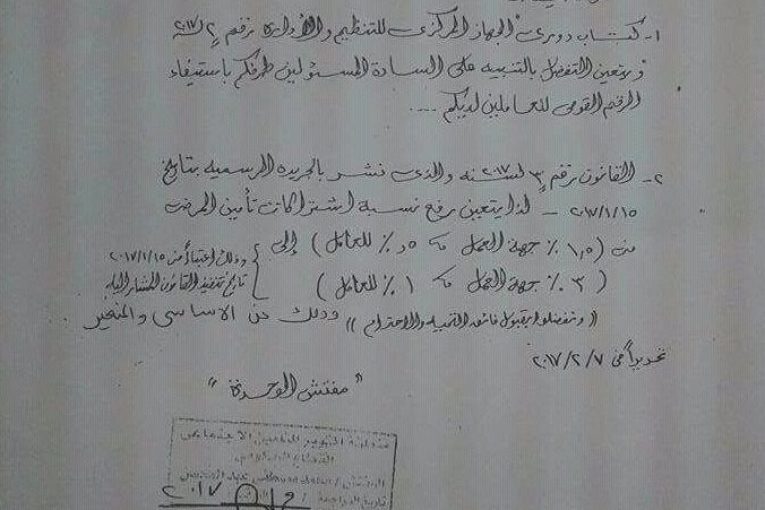 ١- كتاب دورى الجهاز المركزى للتنظيم والأدارة رقم ٢ لسنة ٢٠١٧
ويتعين التفضل بالتنبيه على السادة المسئولين طرفكم باستيفاء
الرقم القومى للعاملين لديكم ....
٢- القانون رقم ٣ لسنه ٢٠١٧ والذى نشر بالجريده الرسميه بتاريخ
٢٠١٧/١/١٥ - لذا يتعين رفع نسبة اشتراكات تأمين المرض
من (١,٥ ٪ جهة العمل ، ٥,٪ للعامل) إلى
(٣ ٪ جهة العمل ، ١ ٪ للعامل)
وذلك اعتباراً من ٢٠١٧/١/١٥
تاريخ تنفيذ القانون المشار اليه
وذلك عن الاساسى والمتغير
"وتفضلوا بقبول فائق التحية والاحترام"
تحريراً فى ٢٠١٧/٢/٧
"مفتش الوحدة"
٢٠١٧